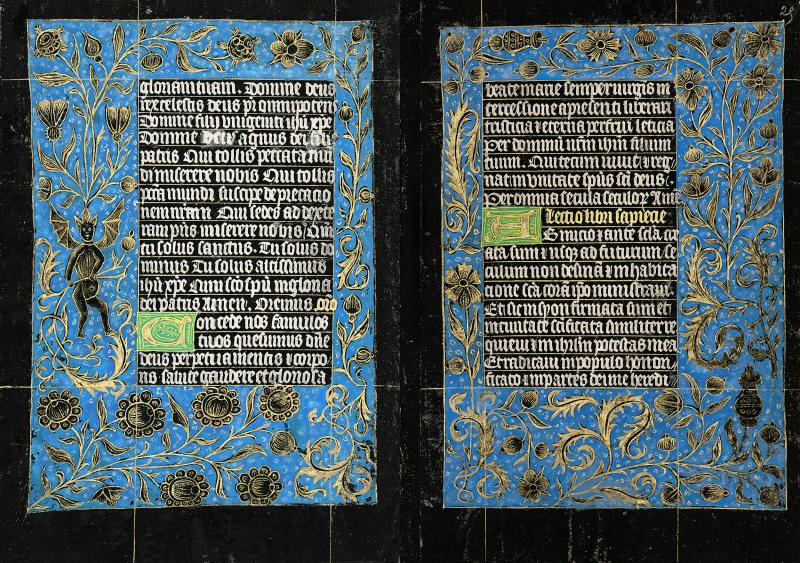 gloriam tuam. Domine deus
rex celestis deus pr omnipoten
Domine fili vnigeniti ihu xpe
Domine deus agnus dei fili
patris Qui tollis peccata mu
di miserere nobis Qui tollis
pcta mundi suscipe deprecacio
nem nram Qui sedes ad dexte
ram pris miserere nobis Qm
tu solus sanctus. Tu solus do
minus Tu solus altissimus
ihu xpe Cum sco spu in gloria
dei patris Amen. Oremus oro
Concede nos famulos
tuos quesumus dne
deus perpetua mentis et corpo
ris salute gaudere et gloriosa
25
beate marie semper virgis in
tercessione a presenti liberari
tristicia et eterna perfrui leticia
Per dominu nrm ihm filium
tuum. Qui tecum viuit et reg
nat in vnitate spus sci deus.
Per omnia secula seculor Ame
Lectio libri sapiecie
Ab inicio et ante scla cre
ata sum et usq ad futurum se
culum non desina et in habita
cione sca cora ipo ministraui.
Et sic in syon firmata sum et
in ciuitate scificata similiter re
quieui et in ihrlm potestas mea
Et radicaui in populo honori
ficato et in partes dei me heredi